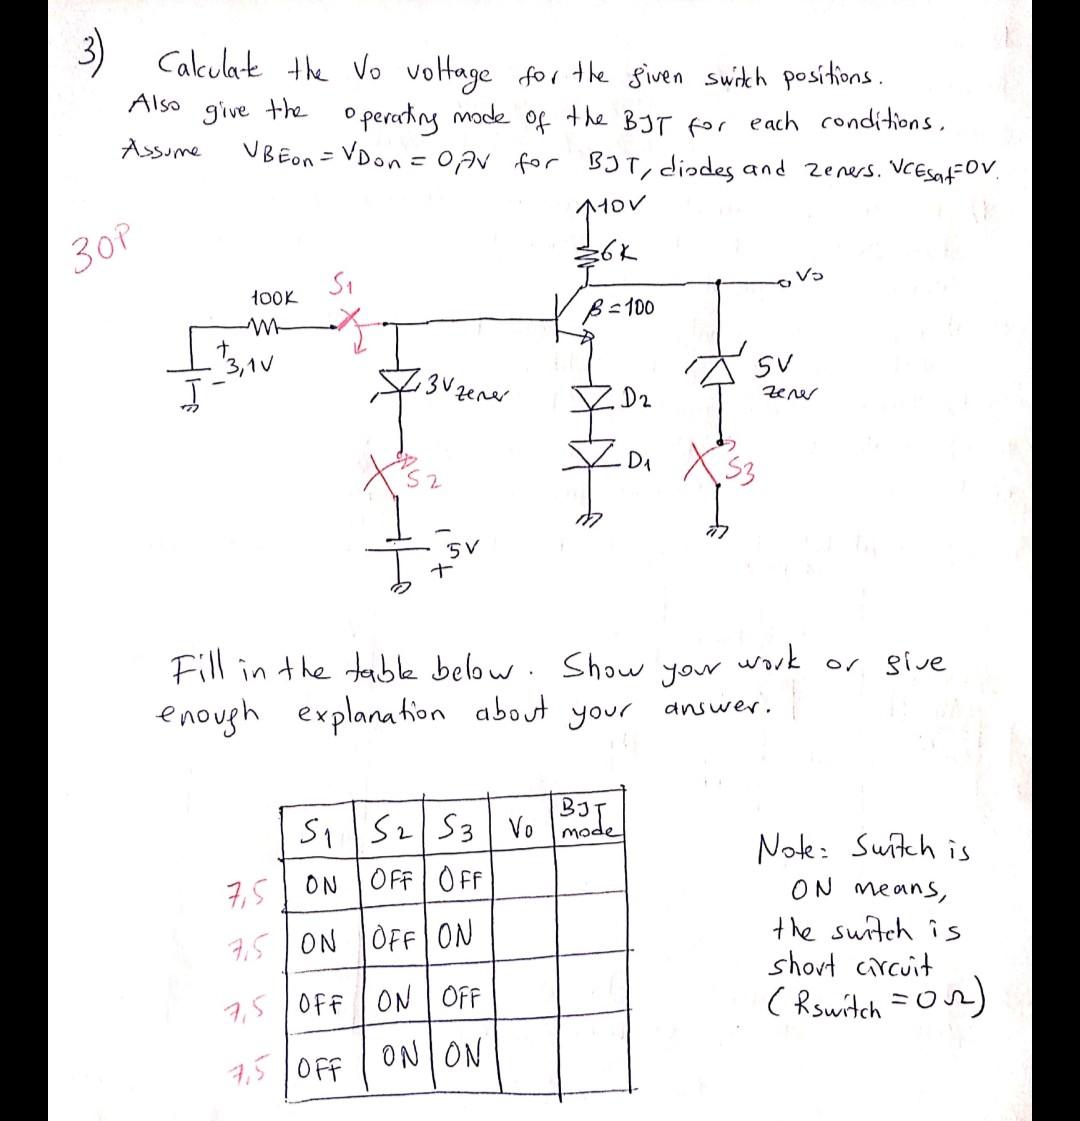 3) Calculate the Vo voltage for the given switch positions.
Also give the operating mode of the BJT for each conditions.
Assume VBEon = VDon = 0,7V for BJT, diodes and zeners. VCEsat=0V.
30P
10V
6K
Vo
100K
S1
β=100
+
3,1V
-
3V zener
D2
5V
zener
S2
D1
S3
-
5V
+
Fill in the table below. Show your work or give
enough explanation about your answer.
S1 S2 S3 Vo BJT mode
7,5 ON OFF OFF
7,5 ON OFF ON
7,5 OFF ON OFF
7,5 OFF ON ON
Note: Switch is
ON means,
the switch is
short circuit
(Rswitch = 0Ω)